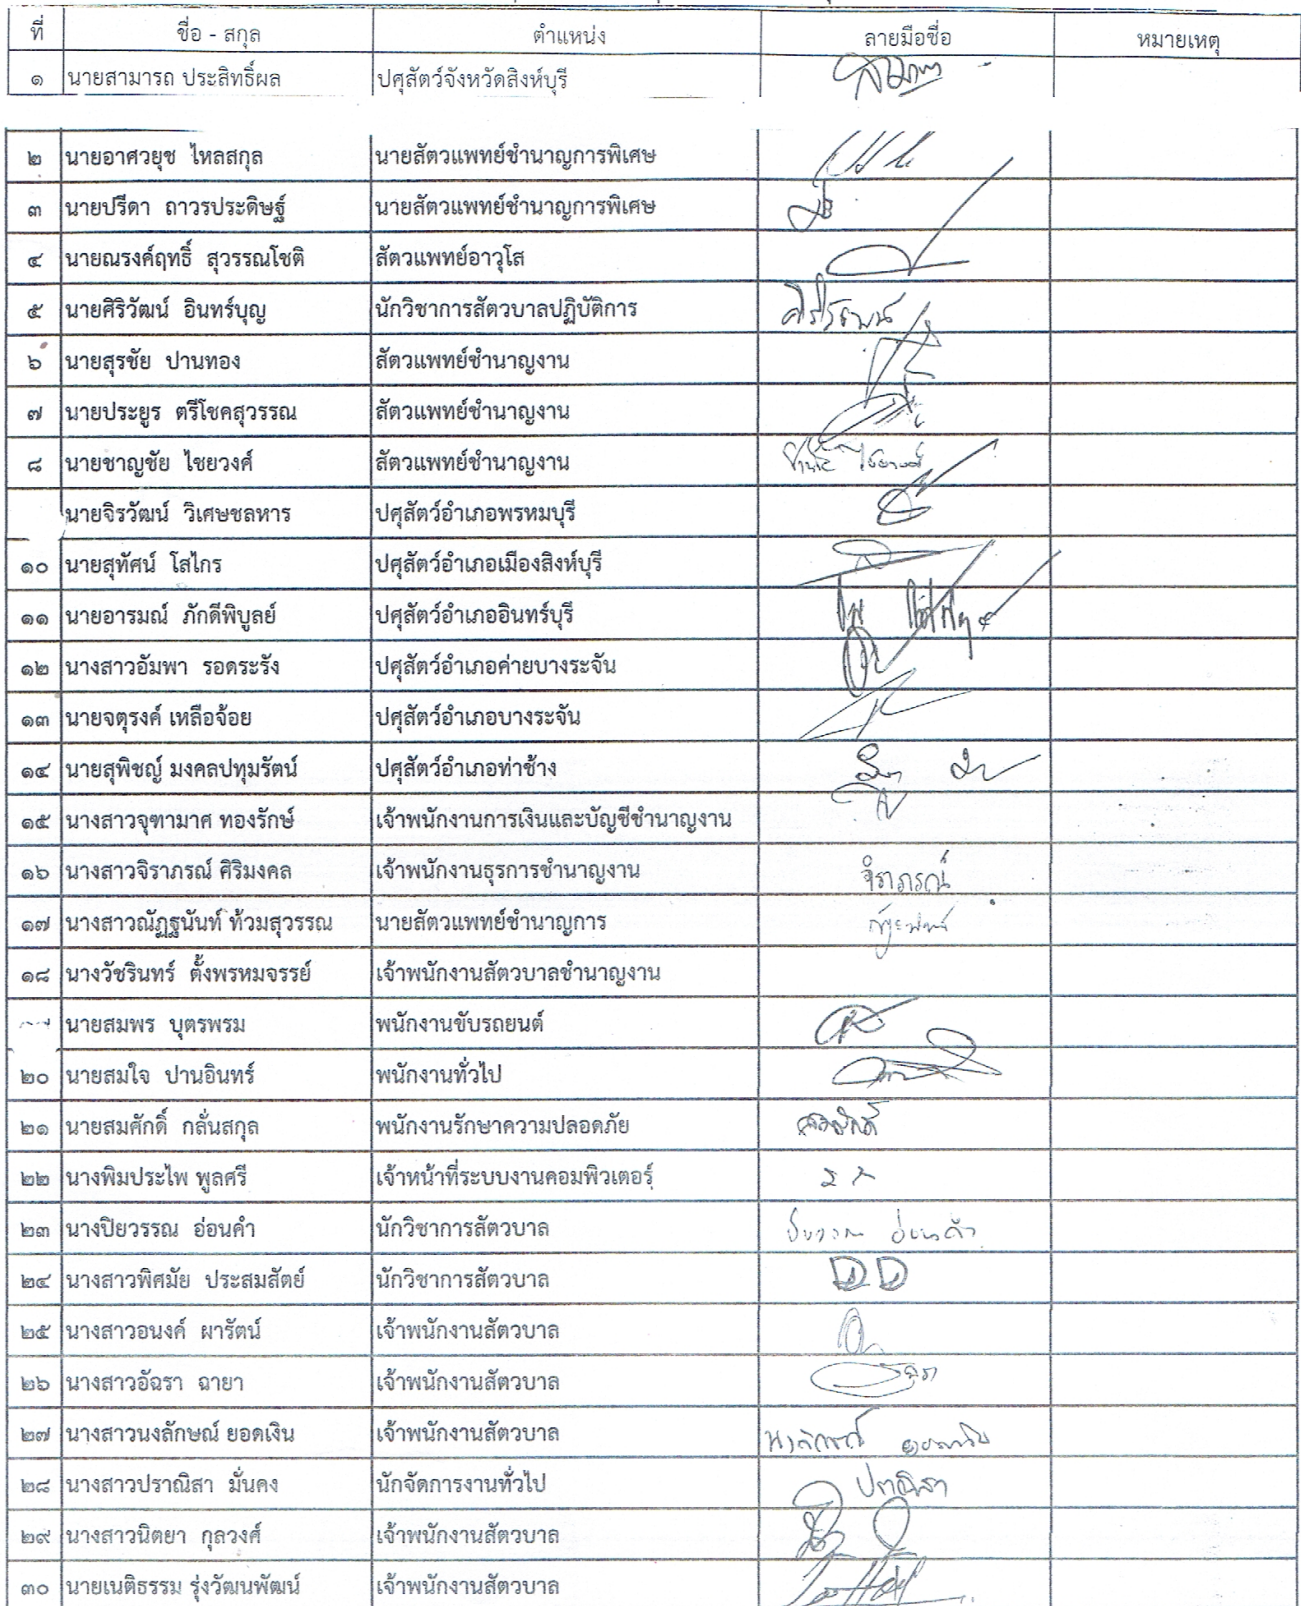 ที่ ชื่อ - สกุล ตำแหน่ง ลายมือชื่อ หมายเหตุ
๑ นายสามารถ ประสิทธิ์ผล ปศุสัตว์จังหวัดสิงห์บุรี
๒ นายอาศวยุช ไหลสกุล นายสัตวแพทย์ชำนาญการพิเศษ
๓ นายปรีดา ถาวรประดิษฐ์ นายสัตวแพทย์ชำนาญการพิเศษ
๔ นายณรงค์ฤทธิ์ สุวรรณโชติ สัตวแพทย์อาวุโส
๕ นายศิริวัฒน์ อินทร์บุญ นักวิชาการสัตวบาลปฏิบัติการ ศิริวัฒน์
๖ นายสุรชัย ปานทอง สัตวแพทย์ชำนาญงาน
๗ นายประยูร ตรีโชคสุวรรณ สัตวแพทย์ชำนาญงาน
๘ นายชาญชัย ไชยวงศ์ สัตวแพทย์ชำนาญงาน
นายจิรวัฒน์ วิเศษชลหาร ปศุสัตว์อำเภอพรหมบุรี
๑๐ นายสุทัศน์ โสไกร ปศุสัตว์อำเภอเมืองสิงห์บุรี
๑๑ นายอารมณ์ ภักดีพิบูลย์ ปศุสัตว์อำเภออินทร์บุรี
๑๒ นางสาวอัมพา รอดระรัง ปศุสัตว์อำเภอค่ายบางระจัน
๑๓ นายจตุรงค์ เหลือจ้อย ปศุสัตว์อำเภอบางระจัน
๑๔ นายสุพิชญ์ มงคลปทุมรัตน์ ปศุสัตว์อำเภอท่าช้าง
๑๕ นางสาวจุฑามาศ ทองรักษ์ เจ้าพนักงานการเงินและบัญชีชำนาญงาน
๑๖ นางสาวจิราภรณ์ ศิริมงคล เจ้าพนักงานธุรการชำนาญงาน จิราภรณ์
๑๗ นางสาวณัฏฐนันท์ ท้วมสุวรรณ นายสัตวแพทย์ชำนาญการ
๑๘ นางวัชรินทร์ ตั้งพรหมจรรย์ เจ้าพนักงานสัตวบาลชำนาญงาน
นายสมพร บุตรพรม พนักงานขับรถยนต์
๒๐ นายสมใจ ปานอินทร์ พนักงานทั่วไป
๒๑ นายสมศักดิ์ กลั่นสกุล พนักงานรักษาความปลอดภัย สมศักดิ์
๒๒ นางพิมประไพ พูลศรี เจ้าหน้าที่ระบบงานคอมพิวเตอร์
๒๓ นางปิยวรรณ อ่อนคำ นักวิชาการสัตวบาล ปิยวรรณ อ่อนคำ
๒๔ นางสาวพิศมัย ประสมสัตย์ นักวิชาการสัตวบาล
๒๕ นางสาวอนงค์ ผารัตน์ เจ้าพนักงานสัตวบาล
๒๖ นางสาวอัฉรา ฉายา เจ้าพนักงานสัตวบาล
๒๗ นางสาวนงลักษณ์ ยอดเงิน เจ้าพนักงานสัตวบาล
๒๘ นางสาวปราณิสา มั่นคง นักจัดการงานทั่วไป ปราณิสา
๒๙ นางสาวนิตยา กุลวงศ์ เจ้าพนักงานสัตวบาล
๓๐ นายเนติธรรม รุ่งวัฒนพัฒน์ เจ้าพนักงานสัตวบาล